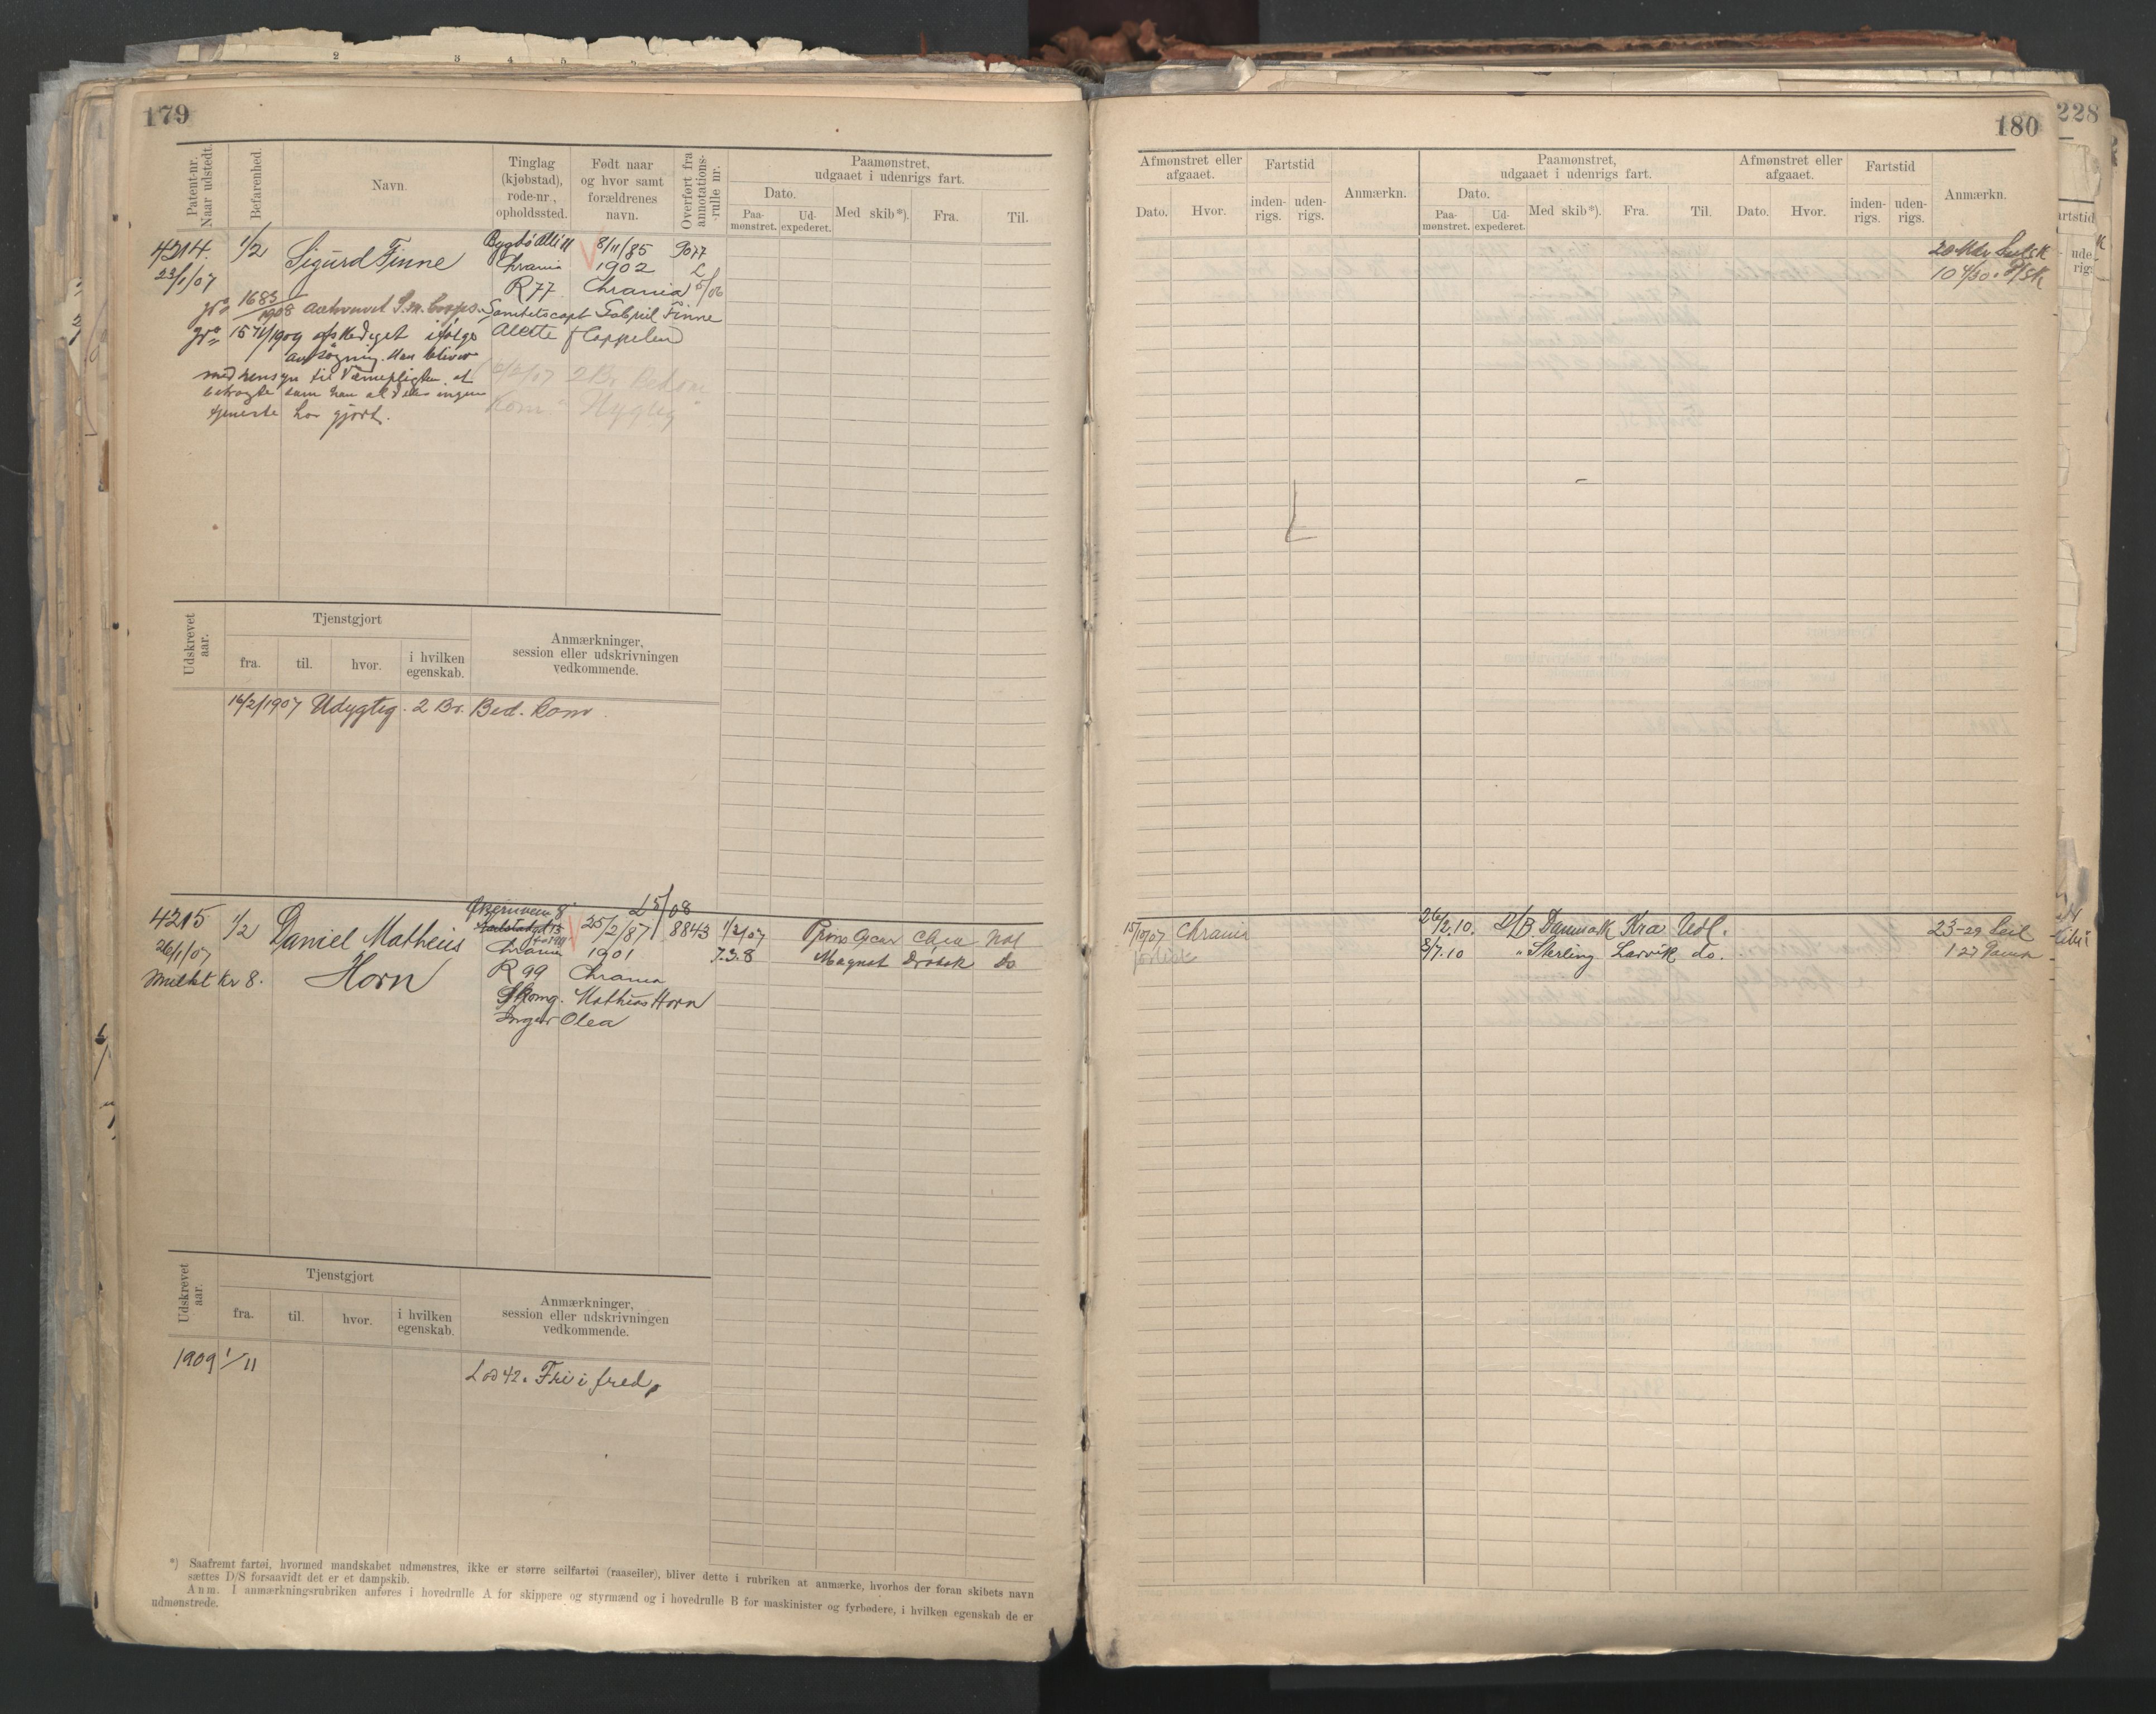 179
Patent-nr.
Naar udstedt.
Befarenhed.
Navn.
Tinglag
(kjøbstad),
rode-nr.,
opholdssted.
Født naar
og hvor samt
forældrenes
navn.
Overført fra
annotations-
-rulle nr.
Paamønstret,
udgaaet i udenrigs fart.
Dato.
Paa-
mønstret.
Ud-
expederet.
Med skib*).
Fra.
Til.
4214. 1/2 Sigurd Finne Bygdö Allé 11 8/11/85 9077
23/1/07 Chrania 1902 L
R 77 Chrania 5/06
1683/1908 S.m. Corps. Sanitetscapt Gabriel Finne
1571/1909 afskediget ifølge Alette f Cappelen
ansøgning. Han bliver
med hensyn til Værnepligten at
betragte som han aldeles ingen
tjeneste har gjort.
16/2/07 2 Br.
Kom
Udskrevet
aar.
Tjenstgjort
fra.
til.
hvor.
i hvilken
egenskab.
Anmærkninger,
session eller udskrivningen
vedkommende.
16/2/1907 Udygtig. 2 Br. Bed. Kom.
L 5/08
4215 1/2 Daniel Matheus 25/2/87 8843 1/2/07 Prins Oscar Chra Hol
26/1/07 Horn Chrania 1901 7.3.8 Magnat Drøbak Do
Mulkt Kr 8. R 99 Chrania
Mathias Horn
Inger Olea
Udskrevet
aar.
Tjenstgjort
fra.
til.
hvor.
i hvilken
egenskab.
Anmærkninger,
session eller udskrivningen
vedkommende.
1909 1/11 Lod 42. Fri i fred.
*) Saafremt fartøi, hvormed mandskabet udmønstres, ikke er større seilfartøi (raaseiler), bliver dette i rubriken at anmærke, hvorhos der foran skibets navn
sættes D/S forsaavidt det er et dampskib.
Anm. I anmærkningsrubriken anføres i hovedrulle A for skippere og styrmænd og i hovedrulle B for maskinister og fyrbødere, i hvilken egenskab de er
udmønstrede.
180
228
Afmønstret eller
afgaaet.
Dato.
Hvor.
Fartstid
inden-
rigs.
uden-
rigs.
Anmærkn.
Paamønstret,
udgaaet i udenrigs fart.
Dato.
Paa-
mønstret.
Ud-
expederet.
Med skib*).
Fra.
Til.
Afmønstret eller
afgaaet.
Dato.
Hvor.
Fartstid
inden-
rigs.
uden-
rigs.
Anmærkn.
15/10/07 Chrania 26/2.10. D/S. Danmark Kra Udl. 23-29
8/7.10 " Sterling Larvik do. 127